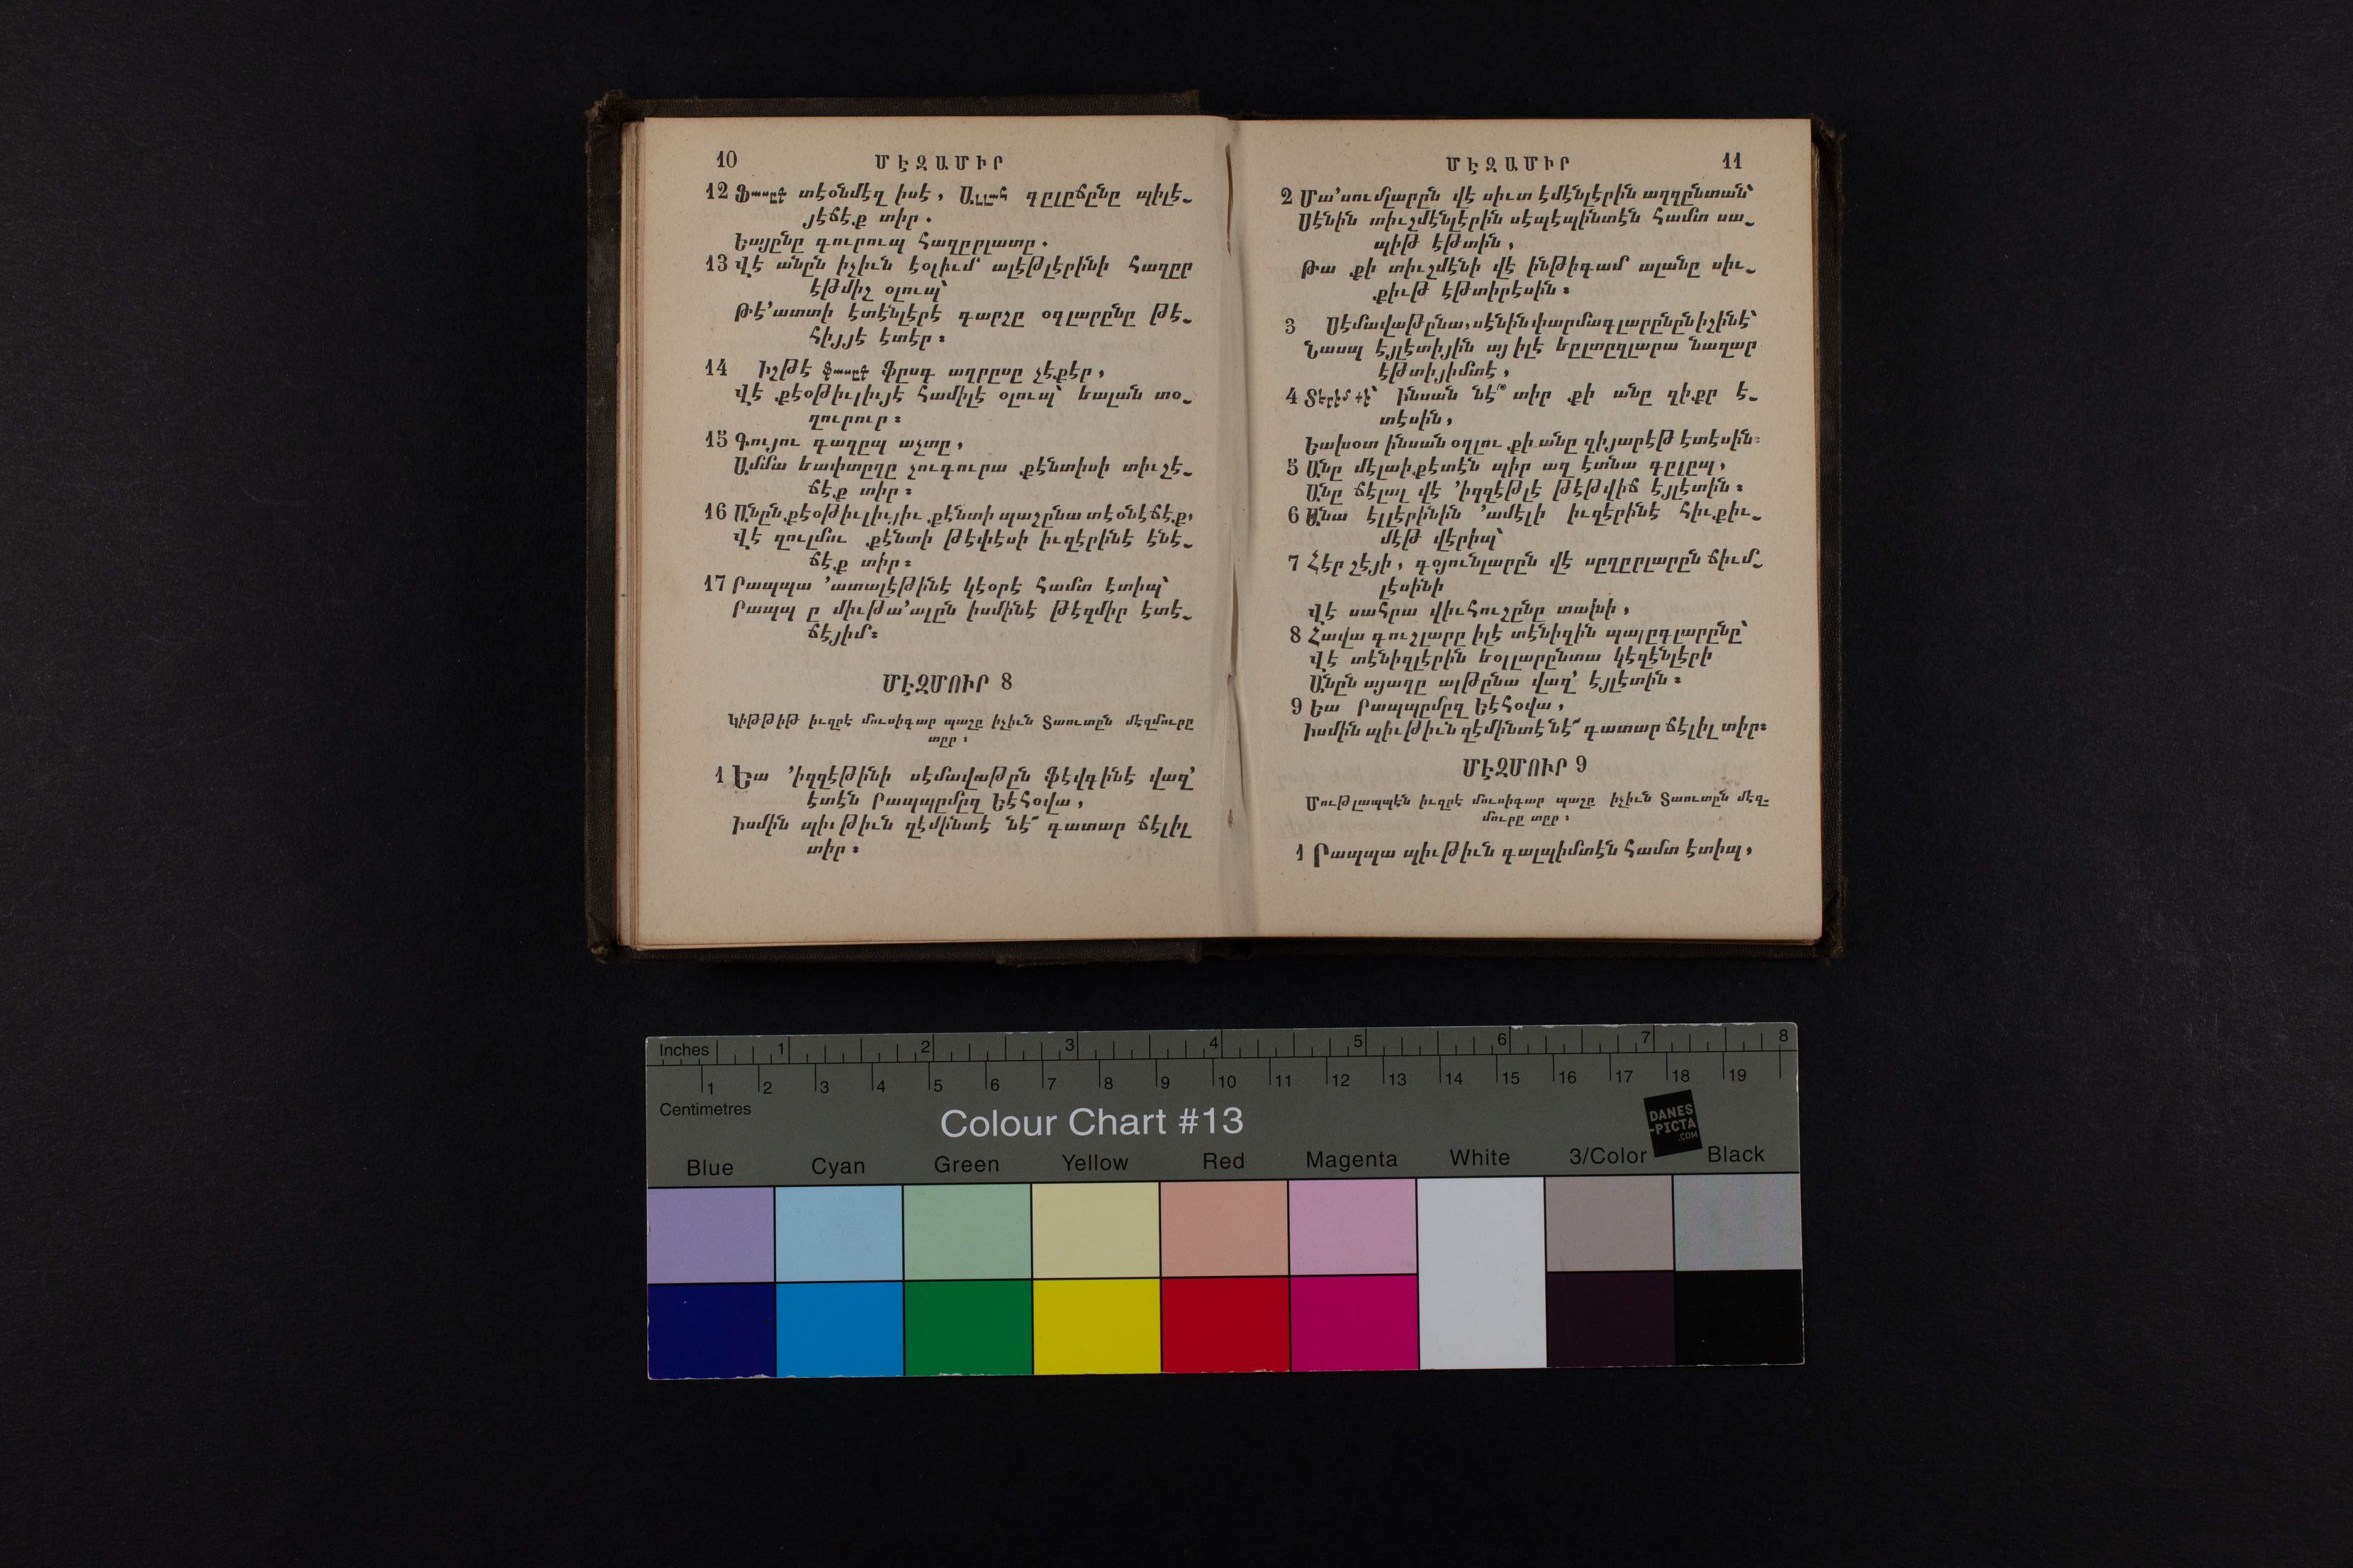 10 ՄԷԶԱՄԻՐ
12 Ֆասըք տէօնմէզ իսէ, Ալլահ ղըլըճընը պիլէ֊
յէճէք տիր.
Եայընը գուրուպ հազըրլատը.
13 Վէ անըն իչիւն էօլիւմ ալէթլէրինի հազըր
էթմիշ օլուպ՝
Թէ՚ատտի էտէնլէրէ գարշը օգլարընը թէ֊
հիյյէ էտէր։
14 Իշթէ ֆասըք ֆըսգ աղրըսը չէքէր,
վէ քէօթիւլիւյէ համիլէ օլուպ՝ եալան տօ֊
ղուրուր։
15 Գույու գազըպ աչտը,
Ամմա եափտըղը չուգուրա քէնտիսի տիւշէ֊
ճէք տիր։
16 Անըն քէօթիւլիւյիւ քէնտի պաշընա տէօնէճէք,
Վէ զուլմու քէնտի թէփէսի իւզէրինէ էնէ֊
ճէք տիր։
17 Րապպա ՚ատալէթինէ կէօրէ համտ էտիպ՝
Րապպ ը միւթա՚ալըն իսմինէ թէզմիր էտէ֊
ճէյիմ։
ՄԷԶՄՈՒՐ 8
Կիթթիթ իւզրէ մուսիգար պաշը իչիւն Տաուտըն մէզմուրը
տըր։
1 Եա ՚իզզէթինի սէմավաթըն ֆէվգինէ վազ՚
էտէն Րապպըմըզ Եէհօվա,
Իսմին պիւթիւն զէմինտէ նէ՜ գատար ճէլիլ
տիր։
ՄԷԶԱՄԻՐ 11
2 Մա՚սումլարըն վէ սիւտ էմէնլէրին աղզընտան՝
Սէնին տիւշմէնլէրին սէպէպինտէն համտ սա֊
պիթ էթտին,
Թա քի տիւշմէնի վէ ինթիգամ ալանը սիւ֊
քիւթ էթտիրէսին։
3 Սէմավաթընա, սէնին փարմագլարընըն իշինէ՝
Նասպ էյլէտիյին այ իլէ եըլտըզլարա նազար
էթտիյիմտէ,
4 Տէրիմ քի՝ Ինսան նէ՞ տիր քի անը զիքր է֊
տէսին,
Եախօտ ինսան օղլու քի անը զիյարէթ էտէսին։
5 Անը մէլաիքէտէն պիր ազ էտնա գըլըպ,
Անը ճէլալ վէ ՚իզզէթլէ թէթվիճ էյլէտին։
6 Անա էլլէրինին ՚ամէլի իւզէրինէ հիւքիւ֊
մէթ վէրիպ՝
7 Հէր շէյի, գօյունլարըն վէ սըղըրլարըն ճիւմ֊
լէսինի
Վէ սահրա վիւհուշընը տախի,
8 Հավա գուշլարը իլէ տէնիզին պալըգլարընը՝
Վէ տէնիզլէրին եօլլարընտա կէզէնլէրի
Անըն այաղը ալթընա վազ՚ էյլէտին։
9 Եա Րապպըմըզ Եէհօվա,
Իսմին պիւթիւն զէմինտէ նէ՜ գատար ճէլիլ տիր։
ՄԷԶՄՈՒՐ 9
Մութլապպէն իւզրէ մուսիգար պաշը իչիւն Տաուտըն մէզ֊
մուրը տըր։
1 Րապպա պիւթիւն գալպիմտէն համտ էտիպ,
Inches 1 2 3 4 5 6 7 8
1 2 3 4 5 6 7 8 9 10 11 12 13 14 15 16 17 18 19
Centimetres
Colour Chart #13
DANES
-PICTA
.COM
Blue Cyan Green Yellow Red Magenta White 3/Color Black